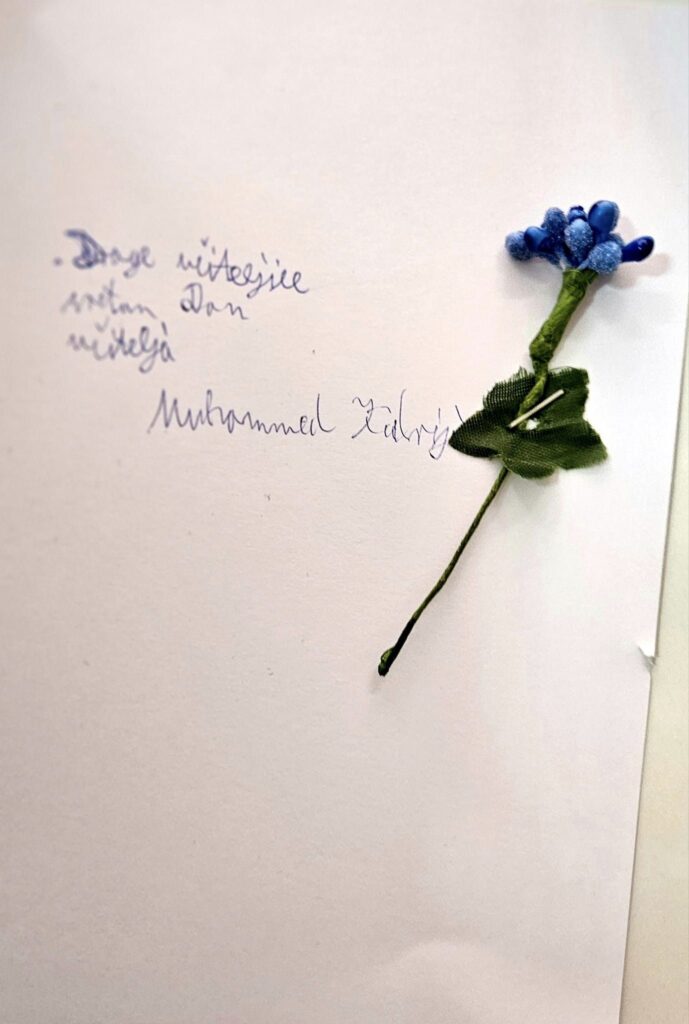 Drage učiteljice
sretan Dan
učitelja
Muhammed